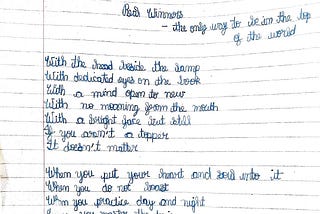 Winners
- the only way to be on the top
of the world
With the head beside the lamp
With dedicated eyes on the book
With a mind open to new
With no moaning from the mouth
With a bright face but still
If you aren't a topper
It doesn't matter
When you put your heart and soul into it
When you do not boast
When you practice day and night